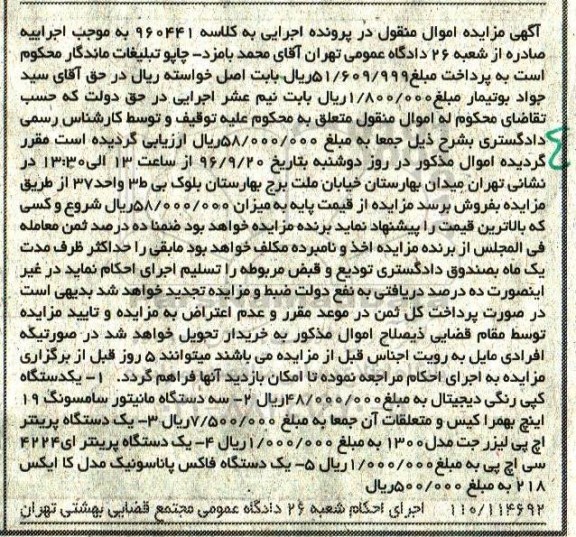 آگهی مزایده اموال منقول در پرونده اجرایی به کلاسه ۹۶۰۴۴۱ به موجب اجراییه
صادره از شعبه ۲۶ دادگاه عمومی تهران آقای محمد بامزد- چاپو تبلیغات ماندگار محکوم
است به پرداخت مبلغ۵۱/۶۰۹/۹۹۹ریال بابت اصل خواسته ریال در حق آقای سید
جواد بوتیمار مبلغ۱/۸۰۰/۰۰۰ریال بابت نیم عشر اجرایی در حق دولت که حسب
تقاضای محکوم له اموال منقول متعلق به محکوم علیه توقیف و توسط کارشناس رسمی
دادگستری بشرح ذیل جمعا به مبلغ ۵۸/۰۰۰/۰۰۰ریال ارزیابی گردیده است مقرر
گردیده اموال مذکور در روز دوشنبه بتاریخ ۹۶/۹/۲۰ از ساعت ۱۳ الی۱۳:۳۰ در
نشانی تهران میدان بهارستان خیابان ملت برج بهارستان بلوک بی ط۳ واحد۳۷ از طریق
مزایده بفروش برسد مزایده از قیمت پایه به میزان ۵۸/۰۰۰/۰۰۰ریال شروع و کسی
که بالاترین قیمت را پیشنهاد نماید برنده مزایده خواهد بود ضمنا ده درصد ثمن معامله
فی المجلس از برنده مزایده اخذ و نامبرده مکلف خواهد بود مابقی را حداکثر ظرف مدت
یک ماه بصندوق دادگستری تودیع و قبض مربوطه را تسلیم اجرای احکام نماید در غیر
اینصورت ده درصد دریافتی به نفع دولت ضبط و مزایده تجدید خواهد شد بدیهی است
در صورت پرداخت کل ثمن در موعد مقرر و عدم اعتراض به مزایده و تایید مزایده
توسط مقام قضایی ذیصلاح اموال مذکور به خریدار تحویل خواهد شد در صورتیگه
افرادی مایل به رویت اجناس قبل از مزایده می باشند میتوانند ۵ روز قبل از برگزاری
مزایده به اجرای احکام مراجعه نموده تا امکان بازدید آنها فراهم گردد. ۱- یکدستگاه
کپی رنگی دیجیتال به مبلغ۴۸/۰۰۰/۰۰۰ریال ۲- سه دستگاه مانیتور سامسونگ ۱۹
اینچ بهمرا کیس و متعلقات آن جمعا به مبلغ ۷/۵۰۰/۰۰۰ریال ۳- یک دستگاه پرینتر
اچ پی لیزر جت مدل۱۳۰۰ به مبلغ ۱/۰۰۰/۰۰۰ریال ۴- یک دستگاه پرینتر ای۴۲۲۴
سی اچ پی به مبلغ۱/۰۰۰/۰۰۰ریال ۵- یک دستگاه فاکس پاناسونیک مدل کا ایکس
۲۱۸ به مبلغ ۵۰۰/۰۰۰ریال
۱۱۰/۱۱۴۶۹۲ اجرای احکام شعبه ۲۶ دادگاه عمومی مجتمع قضایی بهشتی تهران